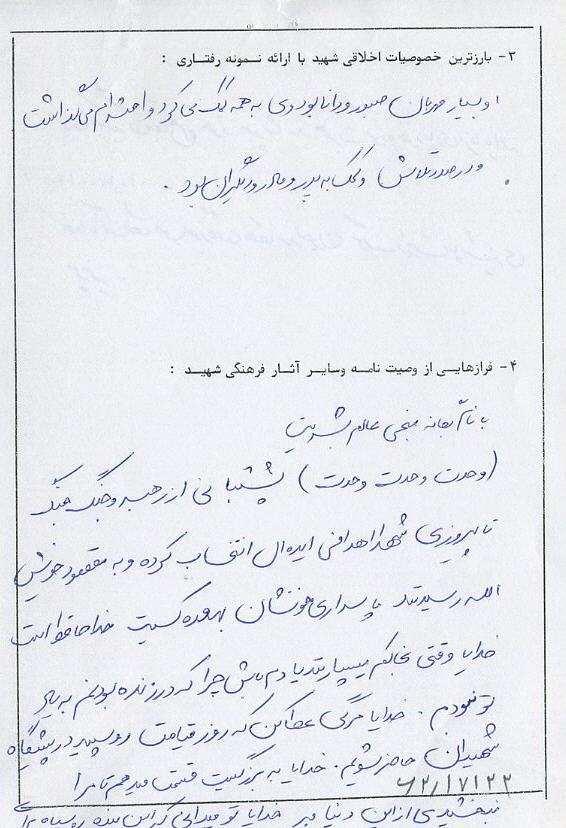 ۳- بارزترین خصوصیات اخلاقی شهید با ارائه نمونه رفتاری :
او بسیار مهربان صبور و دانا بود وی به همه کمک می کرد و احترام می گذاشت
و درصدد تلاش و کمک به پدر و مادر و دیگران بود .
۴- فرازهایی از وصیت نامه وسایر آثار فرهنگی شهید :
با نام یگانه منجی عالم بشریت
(وحدت وحدت وحدت) پشتیبانی از رهبر و جنگ جنگ
تا پیروزی شهدا اهدافی ایده ال انتخاب کرده و به مقصود خویش
الله رسیدند پاسداری خونشان بعهده کسیت خدا حافظ است
خدایا وقتی بخاکم میسپارند یادم باش چرا که در زنده بودنم به یاد
تو نبودم . خدایا مرگی عطا کن که روز قیامت روسپید در پیشگاه
شهیدان حاضر شویم . خدایا به بزرگیت قسمت میدهم تا مرا
نبخشیدی از این دنیا مبر خدایا تو میدانی که این بنده روسیاه
۶۲/۱۷۱۲۲